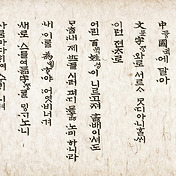 中國에 달아
文字와로 서르 ᄉᆞᄆᆞᆺ디 아니ᄒᆞᆯᄊᆡ
이런 젼ᄎᆞ로
어린 百姓이 니르고져 홇배이셔도
ᄆᆞᄎᆞᆷ내 제 ᄠᅳ들 시러 펴디 몯ᄒᆞᇙ 노미 하니라
내 이ᄅᆞᆯ 為ᄒᆞ야 어엿비너겨
새로 스믈여듧字ᄅᆞᆯ ᄆᆡᇰᄀᆞ노니